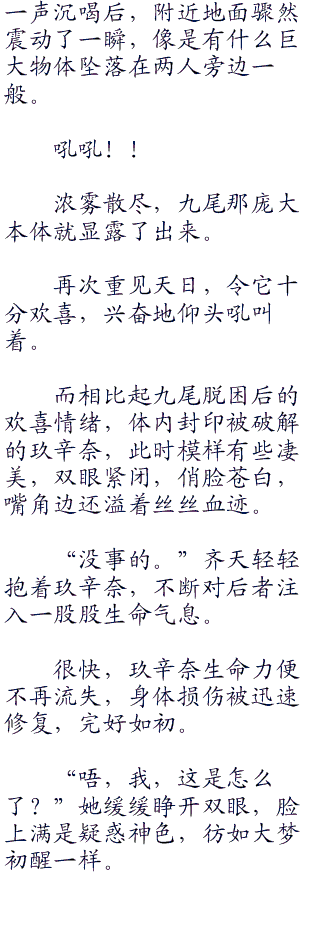 一声沉喝后，附近地面骤然
震动了一瞬，像是有什么巨
大物体坠落在两人旁边一
般。
吼吼！！
浓雾散尽，九尾那庞大
本体就显露了出来。
再次重见天日，令它十
分欢喜，兴奋地仰头吼叫
着。
而相比起九尾脱困后的
欢喜情绪，体内封印被破解
的玖辛奈，此时模样有些凄
美，双眼紧闭，俏脸苍白，
嘴角边还溢着丝丝血迹。
“没事的。”齐天轻轻
抱着玖辛奈，不断对后者注
入一股股生命气息。
很快，玖辛奈生命力便
不再流失，身体损伤被迅速
修复，完好如初。
“唔，我，这是怎么
了？”她缓缓睁开双眼，脸
上满是疑惑神色，彷如大梦
初醒一样。